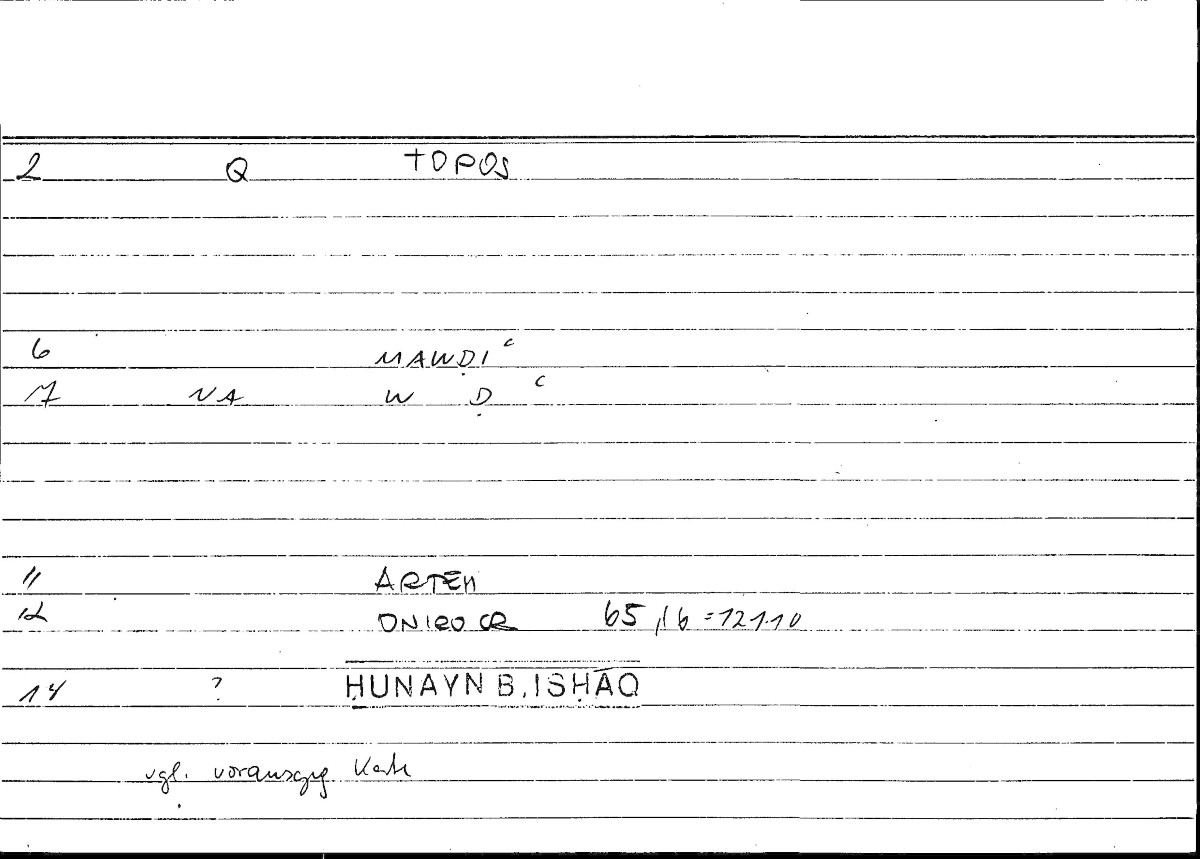 2 Q TOPOS
6 MAWḌIʿ
7 NA W Ḍ ʿ
11 ARTEM
12 ONIROCR 65,16 = 121.10
14 ? ḤUNAYN B. ISḤĀQ
vgl. vorausgeg Karte